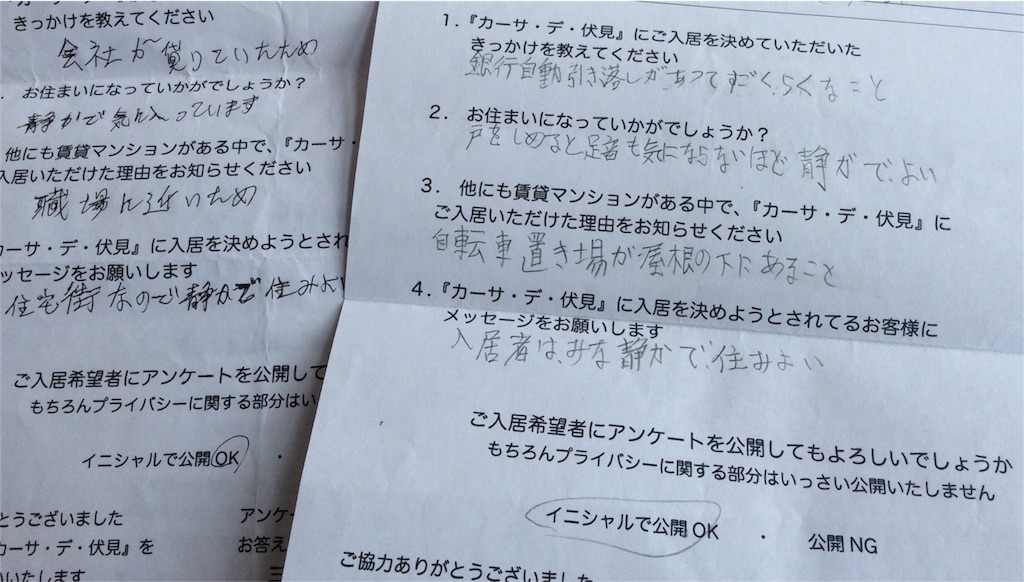 きっかけを教えてください
会社が貸りていたため
お住まいになっていかがでしょうか？
静かで気に入っています
他にも賃貸マンションがある中で、『カーサ・
入居いただけた理由をお知らせください
職場に近いため
カーサ・デ・伏見』に入居を決めようとされ
メッセージをお願いします
住宅街なので静かで住みよい
ご入居希望者にアンケートを公開して
もちろんプライバシーに関する部分はい
イニシャルで公開OK ・
とうございました アンケー
カーサ・デ・伏見』を お答え
いいたします
1.『カーサ・デ・伏見』にご入居を決めていただいた
きっかけを教えてください
銀行自動引き落しがあってすごくらくなこと
2. お住まいになっていかがでしょうか？
戸をしめると足音も気にならないほど静かで、よい
3. 他にも賃貸マンションがある中で、『カーサ・デ・伏見』に
ご入居いただけた理由をお知らせください
自転車置き場が屋根の下にあること
4.『カーサ・デ・伏見』に入居を決めようとされてるお客様に
メッセージをお願いします
入居者は、みな静かで、住みよい
ご入居希望者にアンケートを公開してもよろしいでしょうか
もちろんプライバシーに関する部分はいっさい公開いたしません
イニシャルで公開 OK ・ 公開 NG
ご協力ありがとうございました